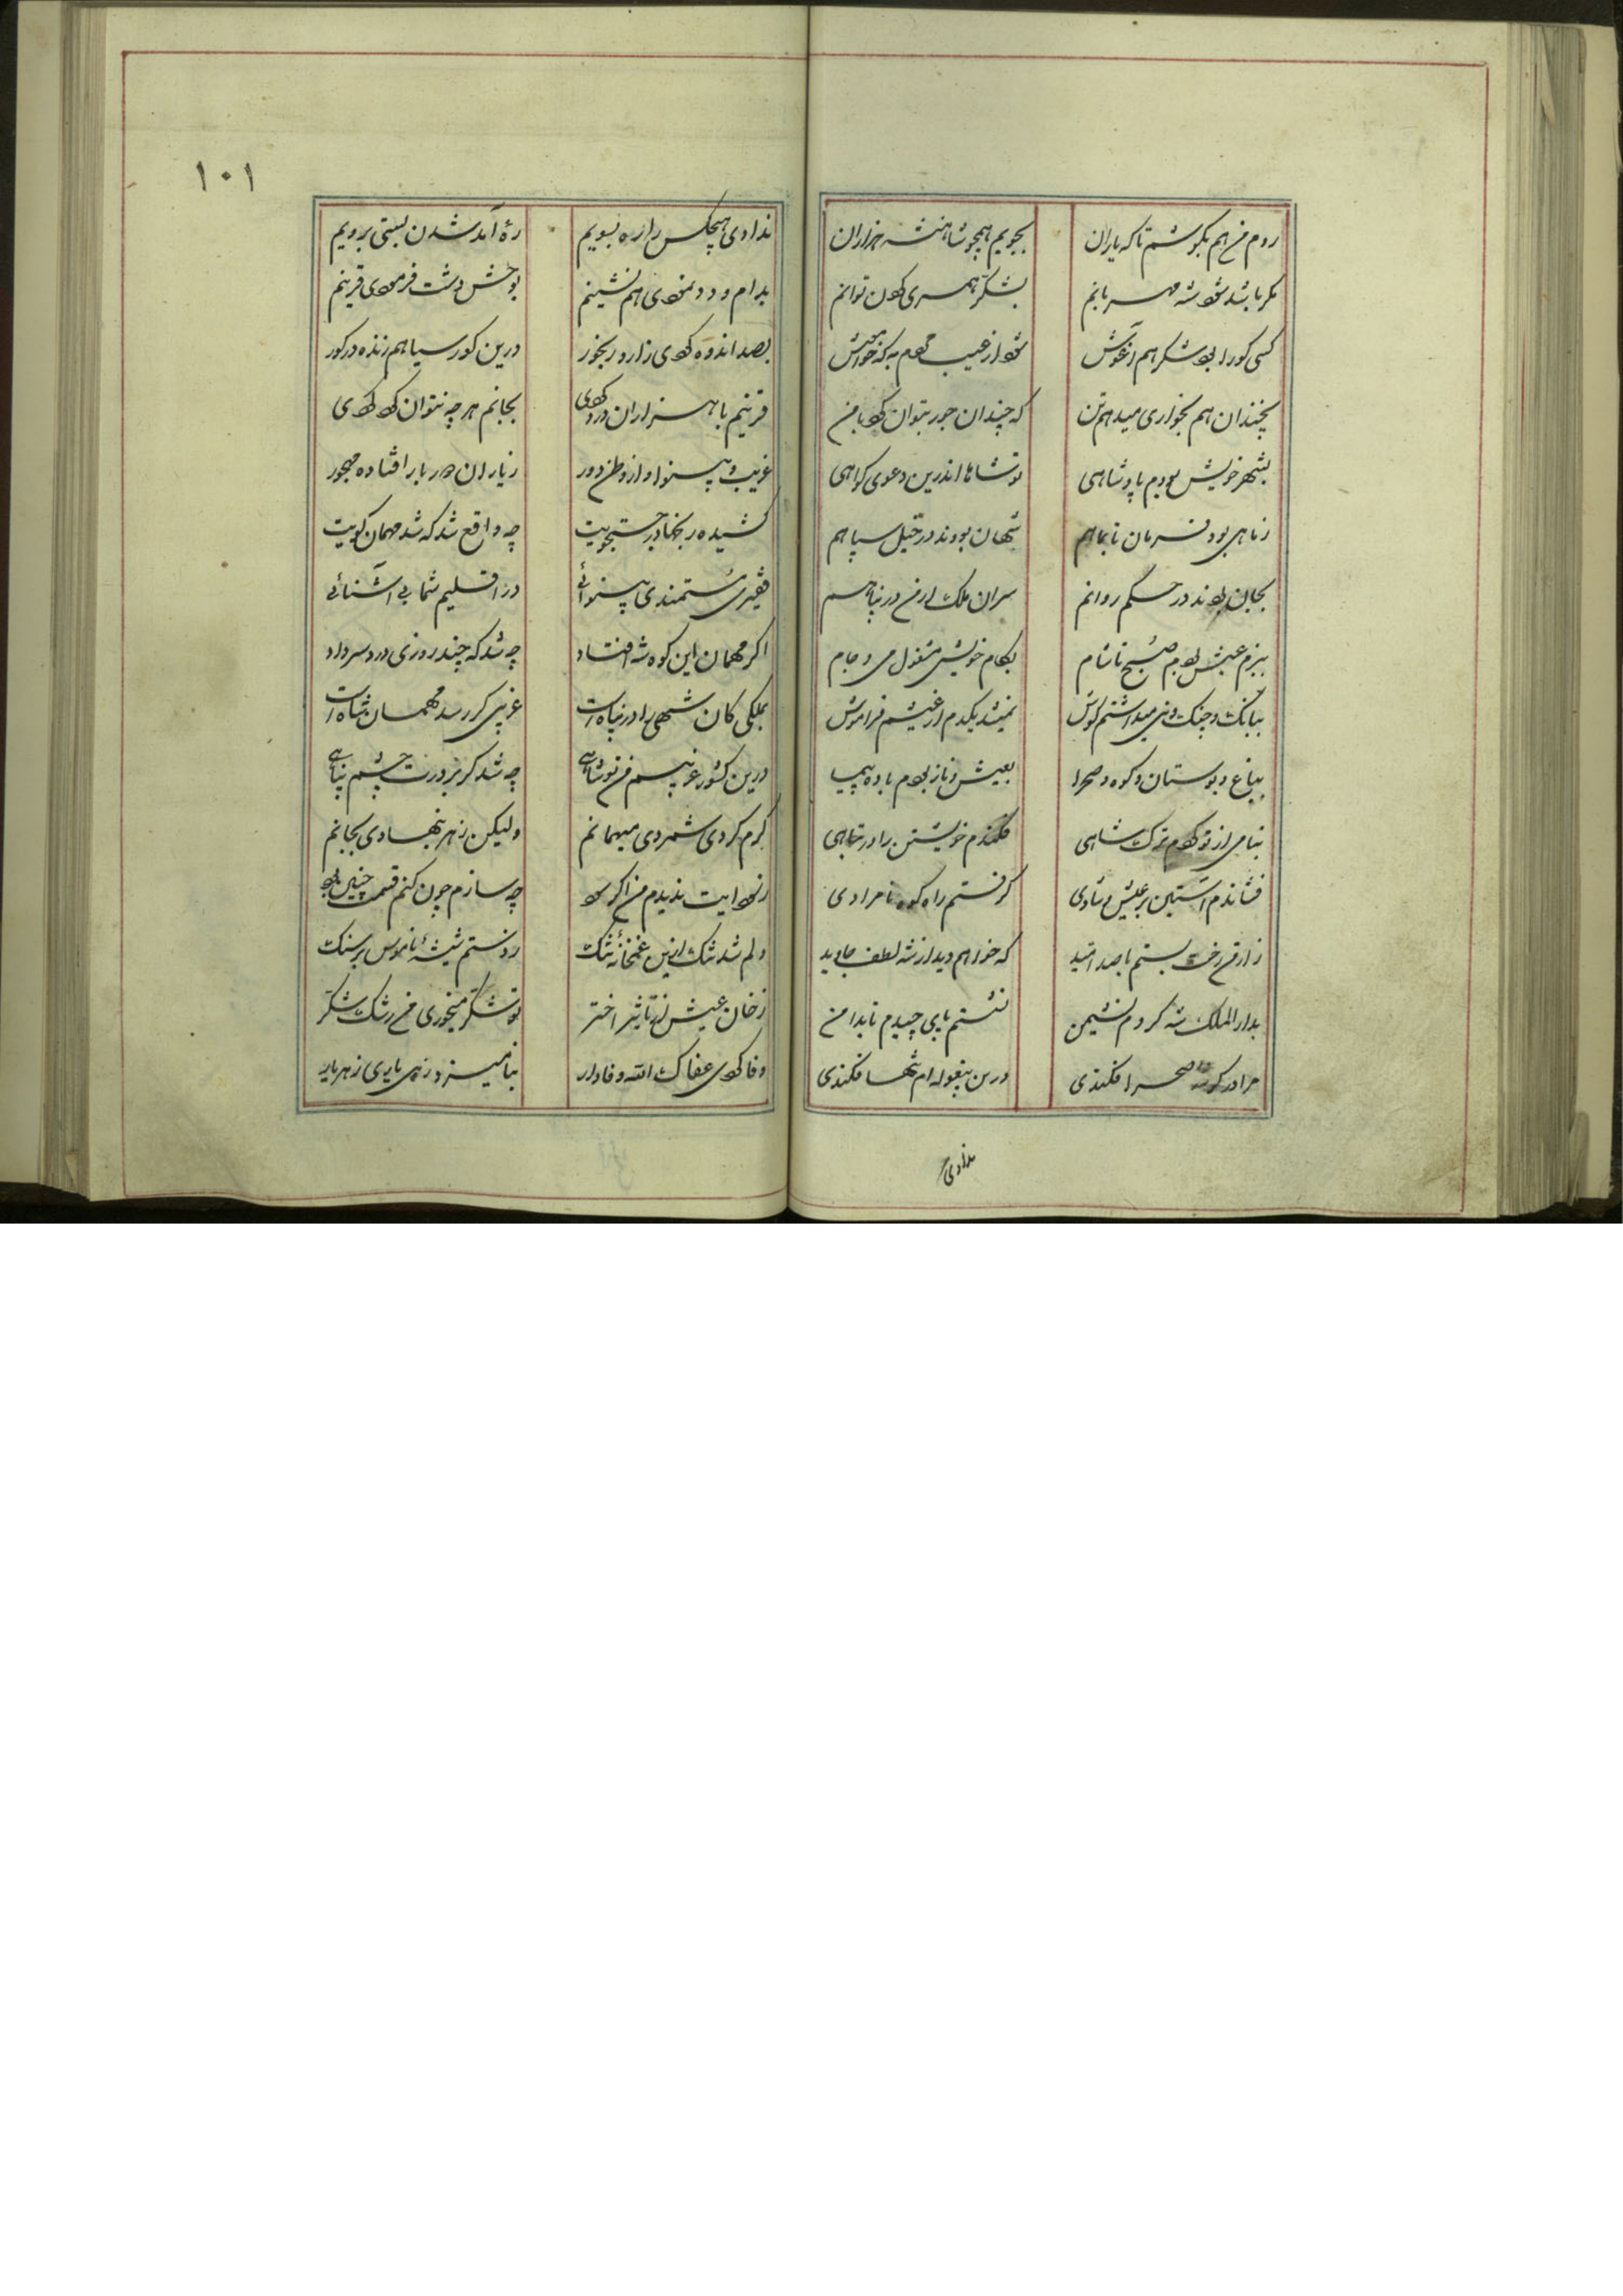 روم من هم بکوشم تا که یاران بجویم همچو شاهنشه هزاران
مکر باشد شود شه مهربانم بشکر همسری کردن توانم
کسی کورا بود شکر هم آغوش شود از غیب محروم به که خواهش
بچندان هم بخواری میدهم تن که چندان جور بتوان کرد با من
بشهر خویش بودم پادشاهی تو شاها اندرین دعوی کواهی
ز ماهی بود فرمان تا بماهم شهان بودند در خیل سپاهم
بجان بودند در حکم روانم سران ملک از من در پناهم
ببزم عیش بودم صبح تا شام بکام خویش مشغول می و جام
ببانک و چنک و نی میداشتم کوش نمیشد یکدم از عیشم فراموش
بباغ و بوستان و کوه و صحرا بعیش و ناز بودم باده پیما
بنامی از تو کردم ترک شاهی فکندم خویشتن را در تباهی
فشاندم آستین بر عیش و شادی کرفتم راه کوه نامرادی
ز ارمن رخت بستم با صد امید که خواهم دید از شه لطف جاوید
بدار الملک شه کردم نشیمن نشستم پای چیدم تا بدامن
مرا در کوه و صحرا فکندی درین بیغوله‌ام تنها فکندی
ندادی
۱۰۱
ندادی هیچکس را ره بسویم ره آمد شدن بستی برویم
بدام و دد نمودی همنشینم بوحش دشت فرمودی قرینم
بصد اندوه کردی زار و رنجور درین کور سیاهم زنده در کور
قرینم با هزاران درد کردی بجانم هر چه نتوان کرد کردی
غریب و بینوا و از وطن دور ز یاران و ز یار افتاده مهجور
کشیده رنجها در جستجویت چه واقع شد که شد مهمان کویت
فقیری مستمندی بینوائی در اقلیم شما بی آشنائی
اکر مهمان این کوه شه افتاد چه شد که چند روزی دردسر داد
بملکی کان شهی را در پناه است غریبی کر رسد مهمان شاه است
درین کشور غریبم من تو شاهی چه شد کر بر درت جستم پناهی
کرم کردی شمردی میهمانم ولیکن زهر بنهادی بجانم
ز خوانت بد ندیدم من اکر بود چه سازم چون کنم قسمت چنین بود
دلم شد تنک ازین غمخانهٔ تنک زدستم شیشهٔ ناموس بر سنک
ز خان عیش از تأثیر اختر تو شکر میخوری من رشک شکر
وفا کردی عفاک الله وفادار بنامیزد زهی یاری زهی یار